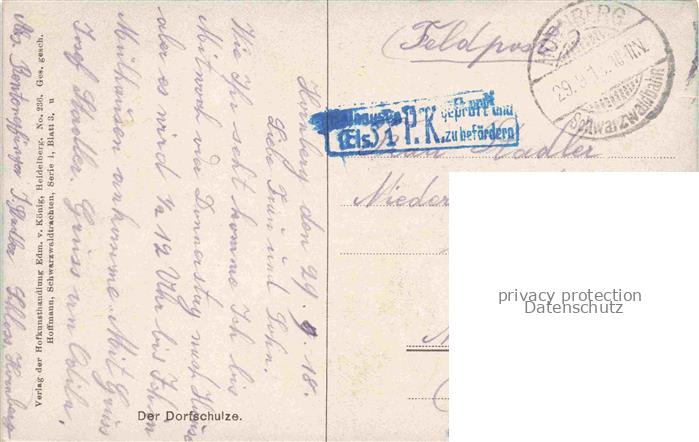 Feldpost
HORNBERG
29.9.18.
(Schwarzwaldbahn)
P. K.
geprüft und
zu befördern
(Els.)
Frau Stadler
Nieder
Hornberg den 29. 9. 18.
Liebe Frau und Sohn.
Wie Ihr seht komme Ich bis
Mitwoch oder Donnerstag nach Hause
aber es wird ½ 12 Uhr bis Ich in
Mülhausen ankomme. Mit Gruss
Josef Stadler. Gruss an
Schloss Hornberg
Verlag der Hofkunsthandlung Edm. v. König, Heidelberg. No. 236. Ges. gesch.
Hoffmann, Schwarzwaldtrachten, Serie I, Blatt 3, u
Der Dorfschulze.
privacy protection
Datenschutz